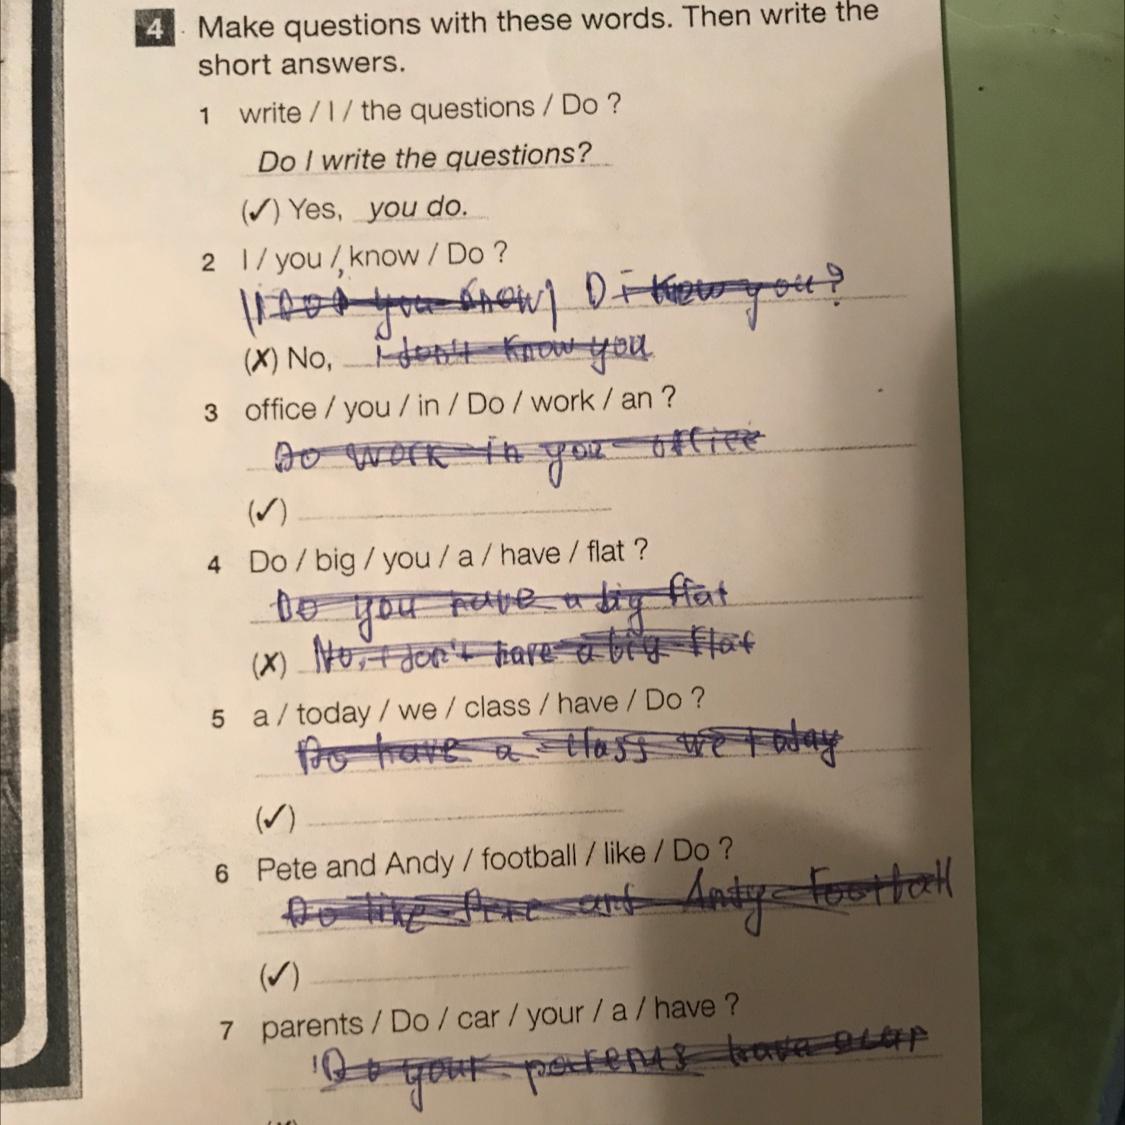 4 Make questions with these words. Then write the
short answers.
1 write / I / the questions / Do ?
Do I write the questions?
(✓) Yes, you do.
2 I / you / know / Do ?
Do you know Do I know you?
(✗) No, I don't know you
3 office / you / in / Do / work / an ?
Do work in you office
(✓)
4 Do / big / you / a / have / flat ?
Do you have a big flat
(✗) No, I don't have a big flat
5 a / today / we / class / have / Do ?
Do have a class we today
(✓)
6 Pete and Andy / football / like / Do ?
Do like Pete and Andy football
(✓)
7 parents / Do / car / your / a / have ?
Do your parents have a car